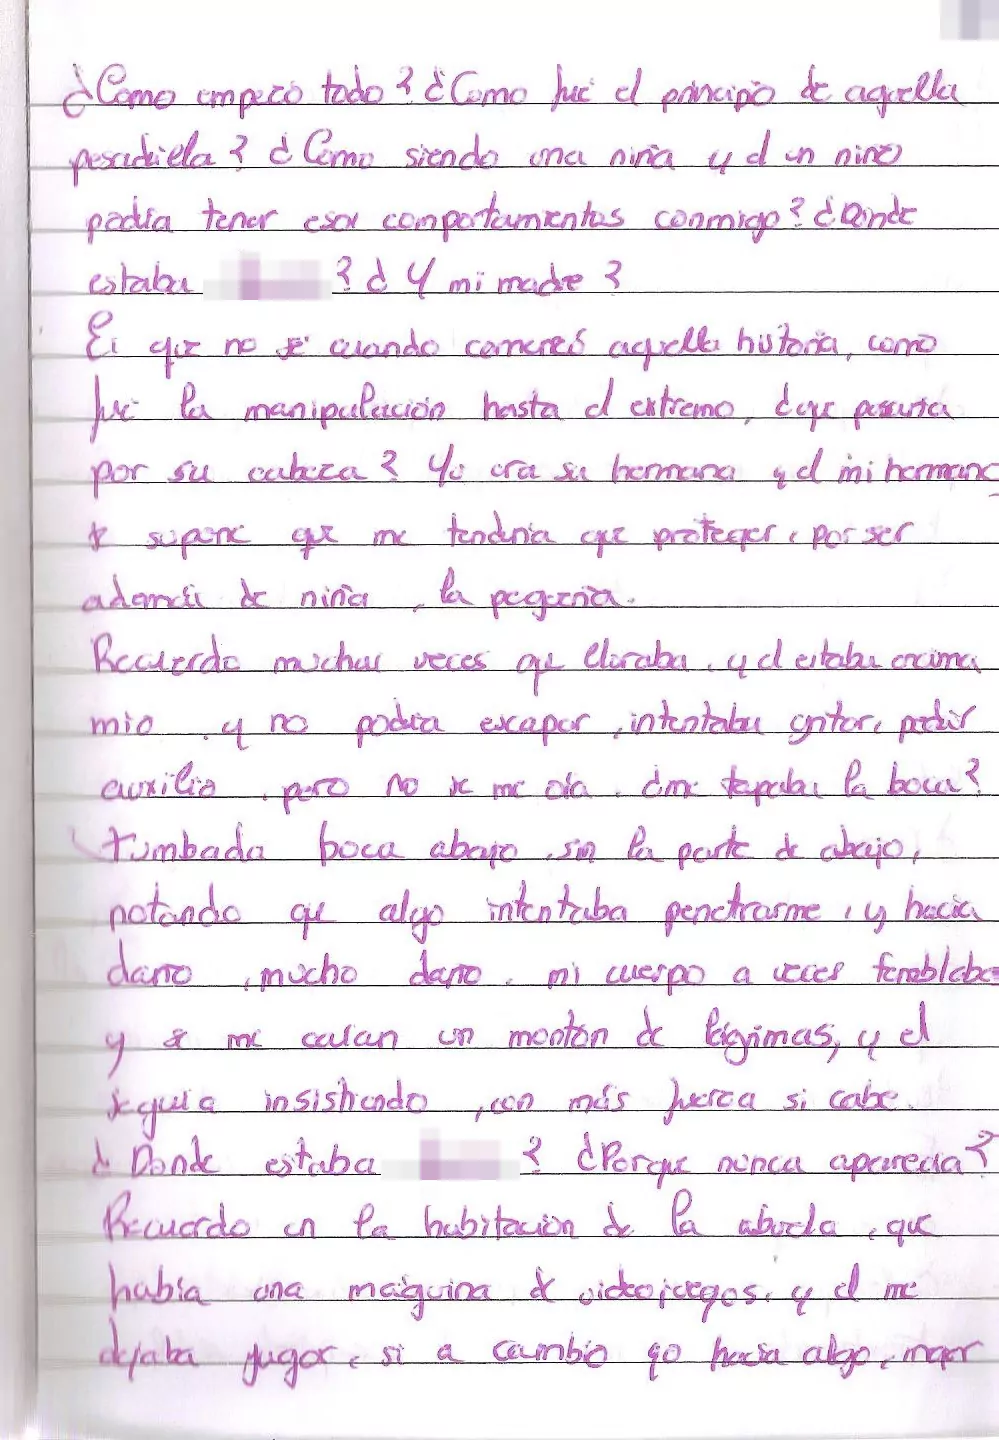 ¿Como empezó todo? ¿Como fué el principio de aquella
pesadiella? ¿Como siendo una niña y el un niño
podia tener esos comportamientos conmigo? ¿Donde
estaba ? ¿Y mi madre?
Es que no se cuando comenzó aquella historia, como
fué la manipulación hasta el extremo, ¿que pasaria
por su cabeza? Yo era su hermana y el mi hermano
se supone que me tendria que proteger, por ser
además de niña, la pequeña.
Recuerdo muchas veces que lloraba, y el estaba encima
mio, y no podia escapar, intentaba gritar, pedir
auxilio, pero no se me oía, ¿me tapaba la boca?
tumbada boca abajo, sin la parte de abajo,
notando que algo intentaba penetrarme, y hacia
daño, mucho daño, mi cuerpo a veces temblaba
y se me caian un montón de lágrimas, y el
seguia insistiendo, con más fuerza si cabe.
¿Donde estaba ? ¿Porque nunca aparecia?
Recuerdo en la habitación de la abuela, que
había una máquina de videojuegos, y el me
dejaba jugar, si a cambio yo hacia algo, mejor